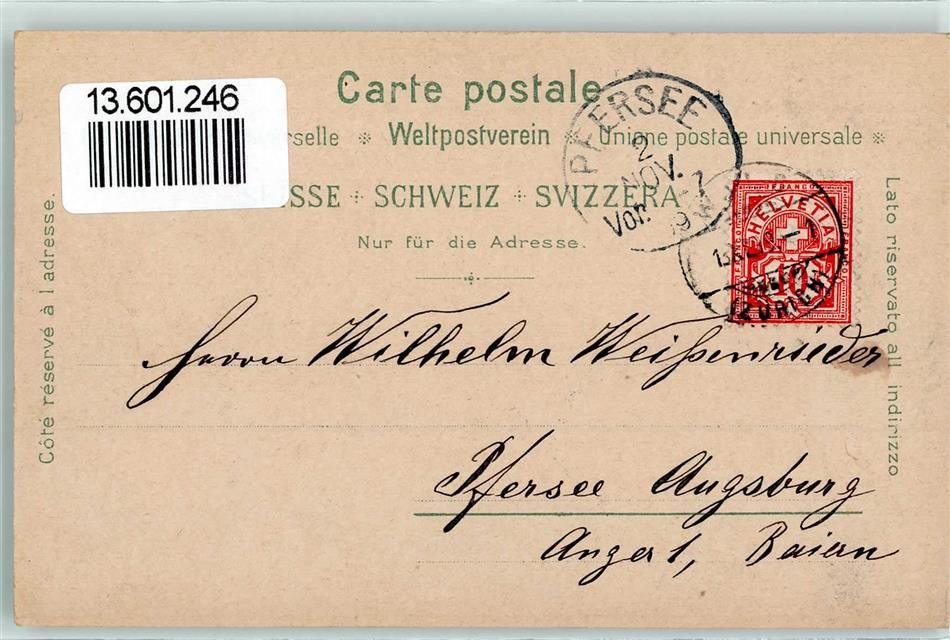 Carte postale
13.601.246
erselle * Weltpostverein * Unione postale universale *
ISSE * SCHWEIZ * SVIZZERA
Nur für die Adresse.
Côté réservé à l adresse.
Lato riservato all indirizzo
PFERSEE
2
NOV.
Vor. -7
9
FRANCO
HELVETIA
10
ZÜRICH
Herrn Wilhelm Weißenrieder
Pfersee Augsburg
Anger 1, Baiern